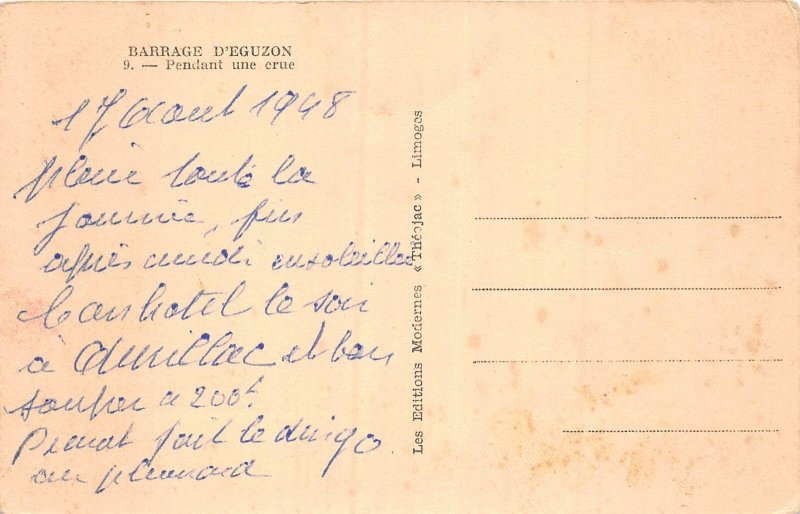 BARRAGE D'EGUZON
9. — Pendant une crue
17 Aout 1948
pluie toute la
journée, fin
après midi ensoleillée
bon hotel le soir
à AURILLAC et bon
souper a 200f.
fait le dingo
au plumard
Les Editions Modernes « Théojac » - Limoges